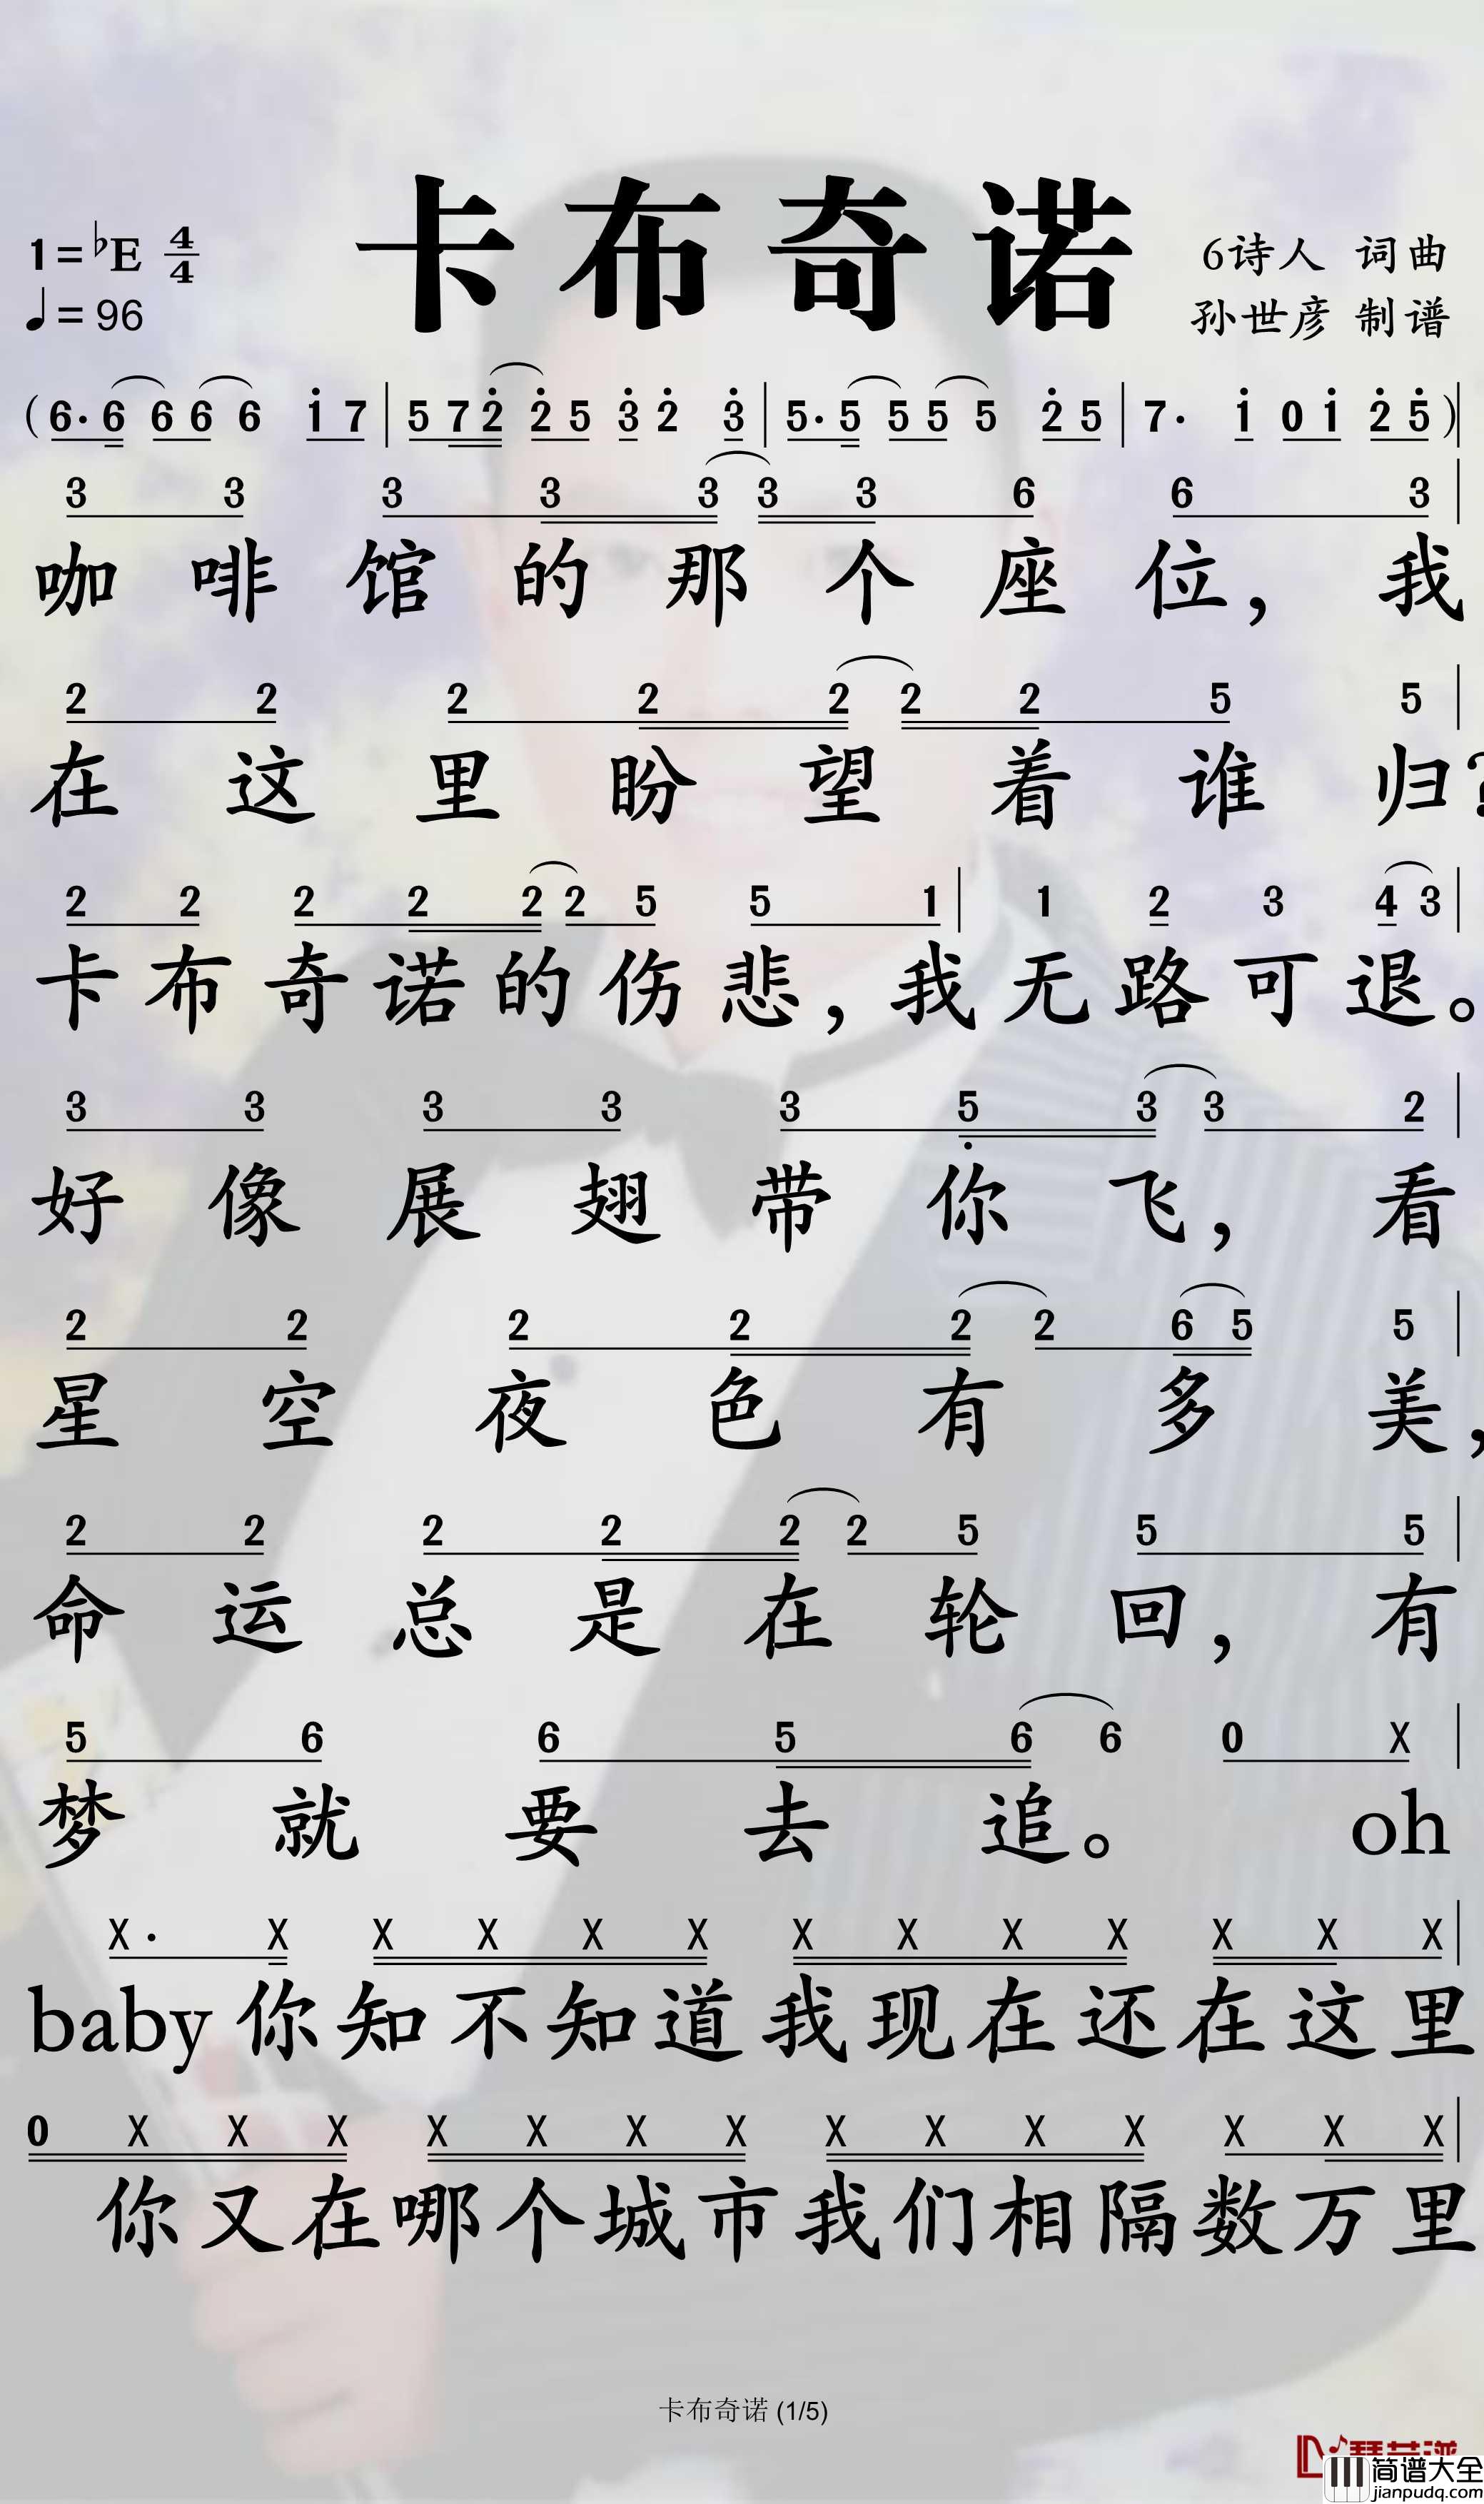 卡布奇诺
1=♭E 4/4
♩=96
6诗人 词曲
孙世彦 制谱
(6·6 6 6 6 i 7 | 5 7 2̇ 2̇ 5 3̇ 2̇ 3̇ | 5·5 5 5 5 2̇ 5 | 7· i 0 i 2̇ 5̇)|
3 3 3 3 3 3 3 6 6 3 |
咖啡馆的那个座位，我
2 2 2 2 2 2 2 5 5 |
在这里盼望着谁归？
2 2 2 2 2 2 5 5 1 | 1 2 3 4 3 |
卡布奇诺的伤悲，我无路可退。
3 3 3 3 3 5̣ 3 3 2 |
好像展翅带你飞，看
2 2 2 2 2 2 6 5 5 |
星空夜色有多美，
2 2 2 2 2 2 5 5 5 |
命运总是在轮回，有
5 6 6 5 6 6 0 X |
梦就要去追。 oh
X· X X X X X X X X X X X X |
baby 你知不知道我现在还在这里
0 X X X X X X X X X X X X X X |
你又在哪个城市我们相隔数万里
卡布奇诺 (1/5)
简谱大全
jianpudq.com